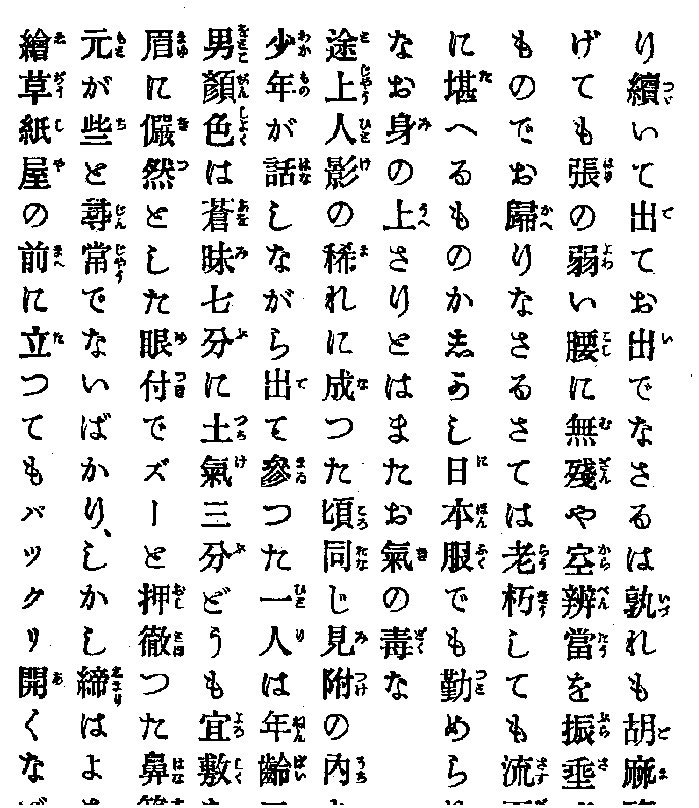 り續いて出てお出でなさるは孰れも胡麻
げても張の弱い腰に無殘や空辨當を振垂
ものでお歸りなさるさては老朽しても流
に堪へるものか志かし日本服でも勤めら
なお身の上さりとはまたお氣の毒な
途上人影の稀れに成つた頃同じ見附の内
少年が話しながら出て參つた一人は年齡
男顏色は蒼味七分に土氣三分どうも宜敷
眉に儼然とした眼付でズーと押徹つた鼻
元が些と尋常でないばかり、しかし締はよ
繪草紙屋の前に立つてもパツクリ開くな